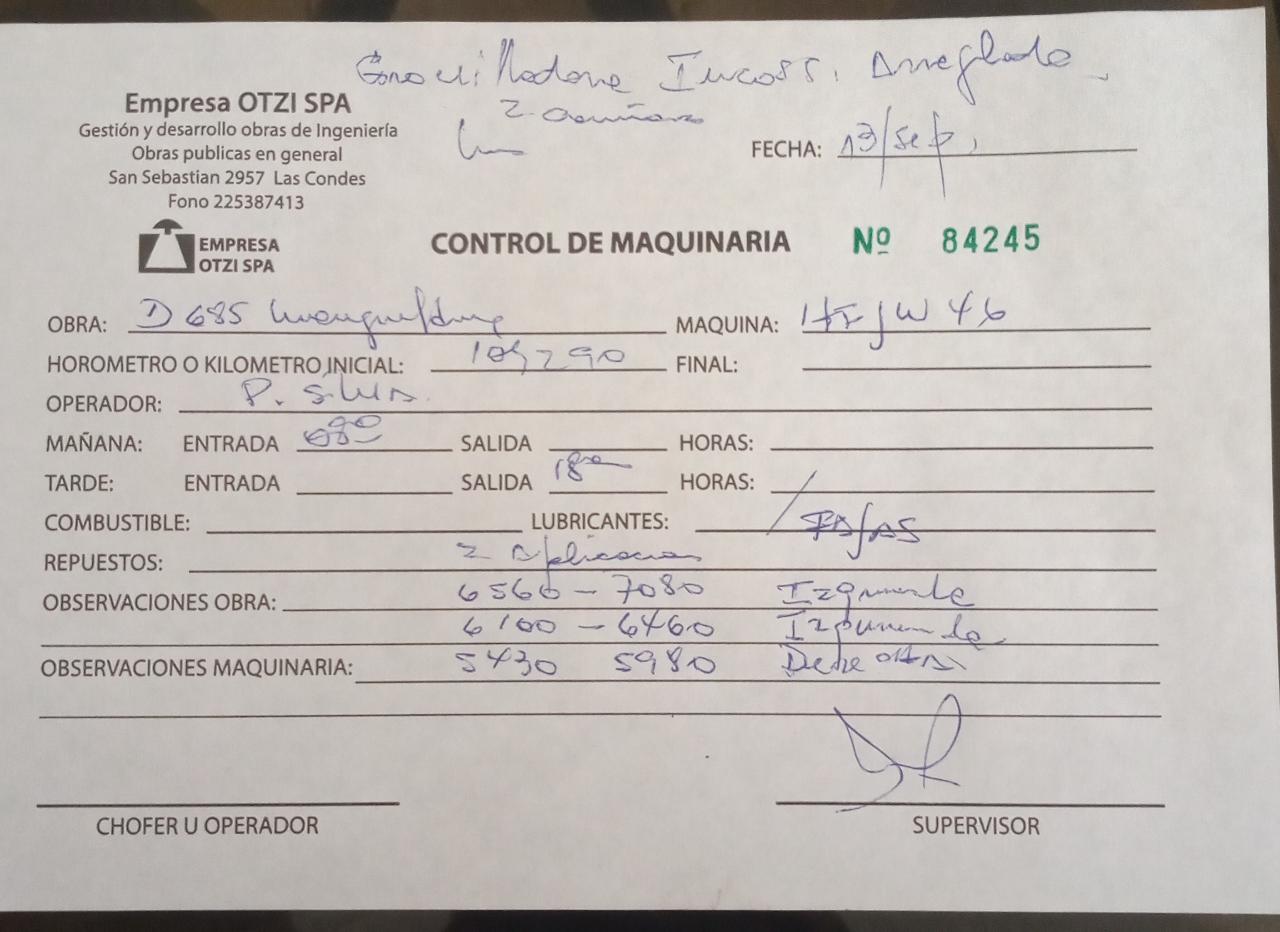 Gravilladora Incoss. Arreglada
2 camiones
Empresa OTZI SPA
Gestión y desarrollo obras de Ingeniería
Obras publicas en general
San Sebastian 2957 Las Condes
Fono 225387413
FECHA: 13/sep.
EMPRESA
OTZI SPA
CONTROL DE MAQUINARIA Nº 84245
OBRA: D 685 MAQUINA: HFJW 46
HOROMETRO O KILOMETRO INICIAL: FINAL:
OPERADOR: P. Silva.
MAÑANA: ENTRADA 08 00 SALIDA HORAS:
TARDE: ENTRADA SALIDA 18 00 HORAS:
COMBUSTIBLE: LUBRICANTES: / FAJAS
REPUESTOS: 2 Aplicacion
OBSERVACIONES OBRA: 6560 - 7080 Izquierda
6100 - 6460 Izquierda
OBSERVACIONES MAQUINARIA: 5430 5980 Derecha
CHOFER U OPERADOR
SUPERVISOR